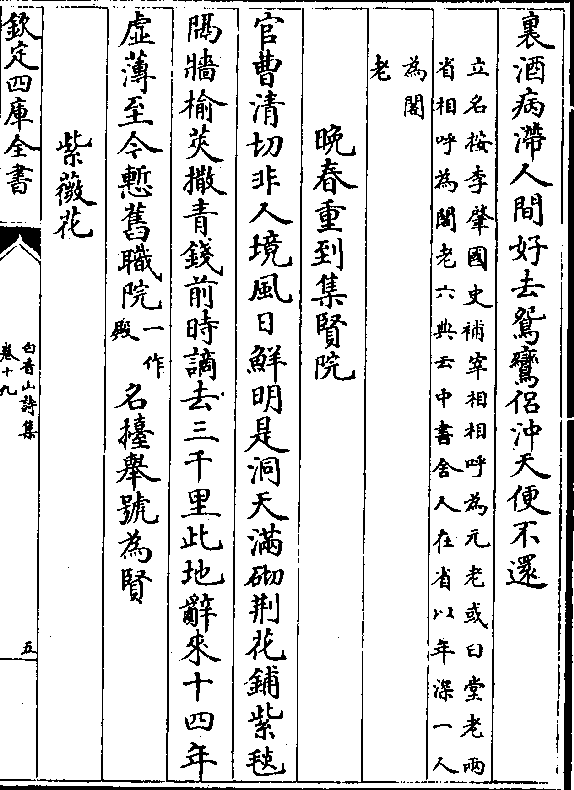 裏酒病滯人間好去鴛鸞侶沖天便不還
立名按李肇國史補宰相相呼為元老或曰堂老兩
省相呼為閣老六典云中書舍人在省以年深一人
為閣
老
晚春重到集賢院
官曹清切非人境風日鮮明是洞天滿砌荆花鋪紫毯
隔牆榆莢撒青錢前時謫去三千里此地辭來十四年
虛薄至今慙舊職院一作殿名擡舉號為賢
紫薇花
欽定四庫全書
白香山詩集
卷十九
五